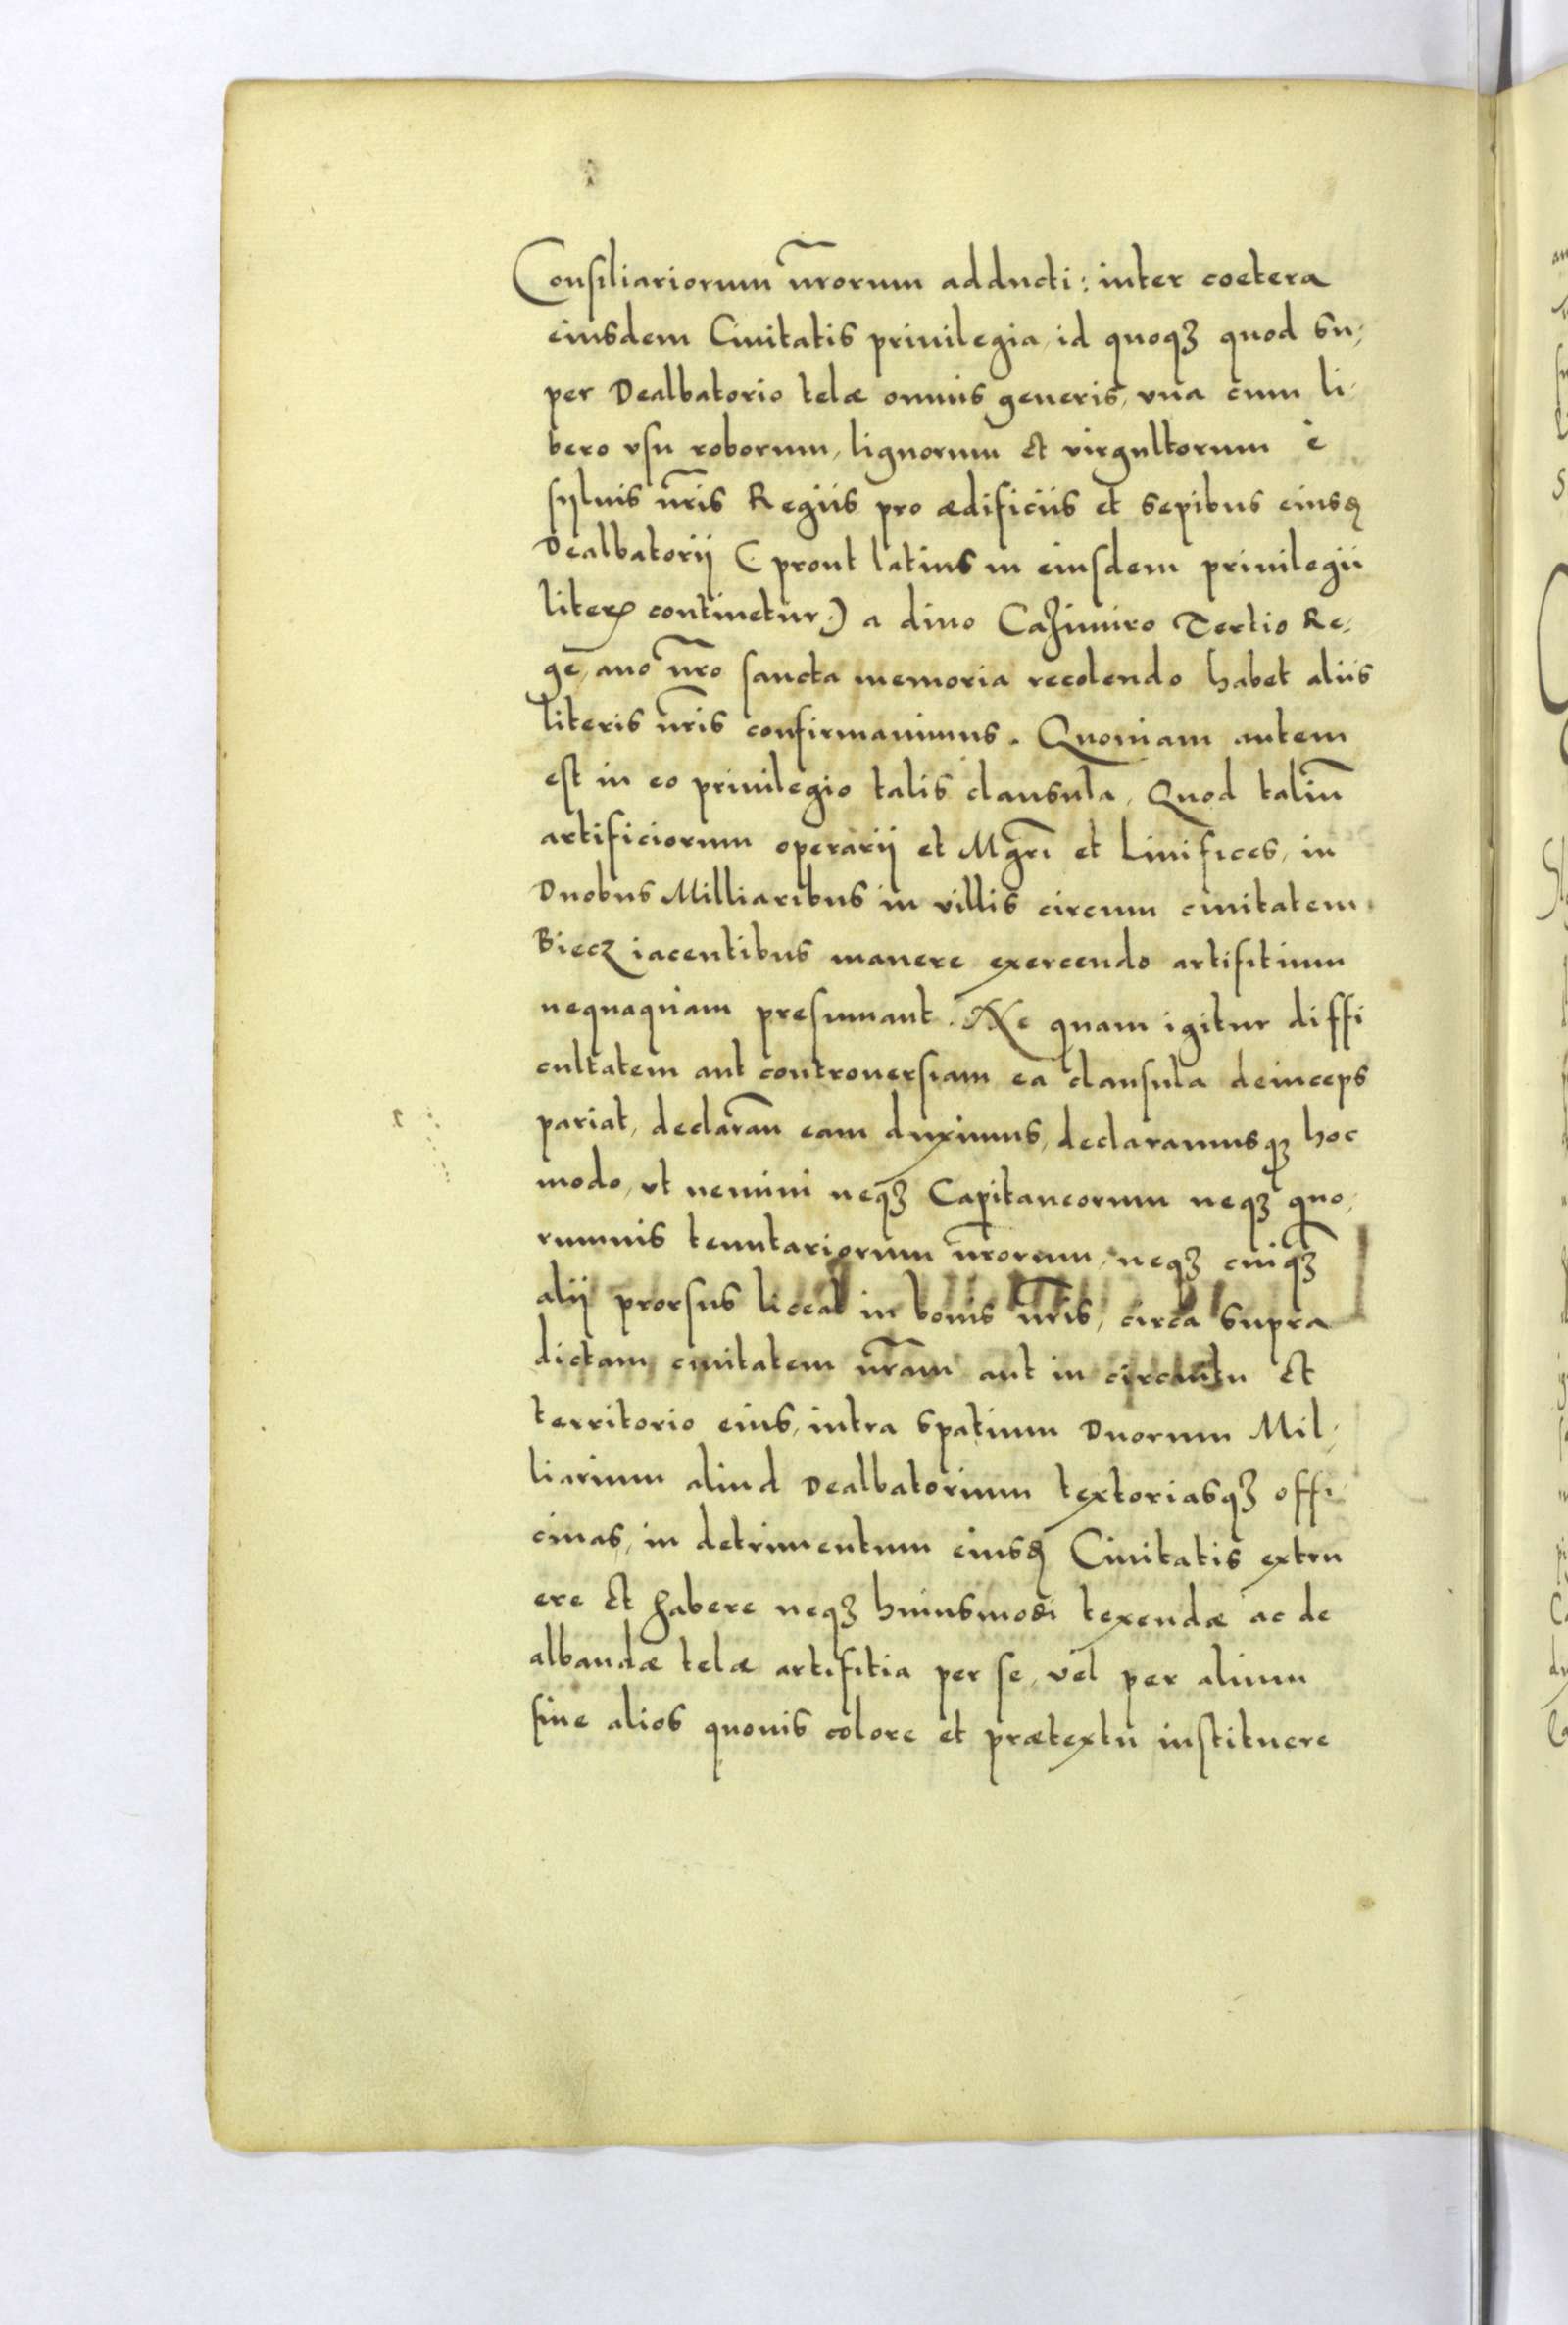 Consiliariorum nr̃orum adducti: inter coetera
eiusdem Ciuitatis priuilegia, id quoqꝫ quod su⸗
per Dealbatorio telæ omnis generis, vna cum li⸗
bero vsu roborum, lignorum et virgultorum è
syluis nr̃is Regiis pro ædificiis et sepibus eiusđ
Dealbatorij (prout latius in eiusdem priuilegii
literꝭ continetur) a diuo Cazimiro Tertio Re⸗
ge, auo nr̃o sancta memoria recolendo habet aliis
literis nr̃is confirmauimus. Quoniam autem
est in eo priuilegio talis clausula, Quod taliũ
artificiorum operarij et Mgr̃i et Linifices, in
Duobus Milliaribus in villis circum ciuitatem
Biecz iacentibus manere exercendo artifitium
nequaquam presumant. Ne quam igitur diffi
cultatem aut controuersiam ea clausula deinceps
pariat, declarañ eam duximus, declaramusqꝫ hoc
modo, vt nemini neqꝫ Capitaneorum neqꝫ quo⸗
rumuis tenutariorum nr̃orum, neqꝫ cuiqꝫ
alij prorsus liceat in bonis nr̃is, circa supra
dictam ciuitatem nr̃am aut in circuitu et
territorio eius, intra spatium Duorum Mil⸗
liarium aliud Dealbatorium textoriasqꝫ offi⸗
cinas, in detrimentum eiusđ Ciuitatis extru
ere et habere neqꝫ huiusmodi texendæ ac de
albandæ telæ artifitia per se, vel per alium
siue alios quouis colore et prætextu instituere